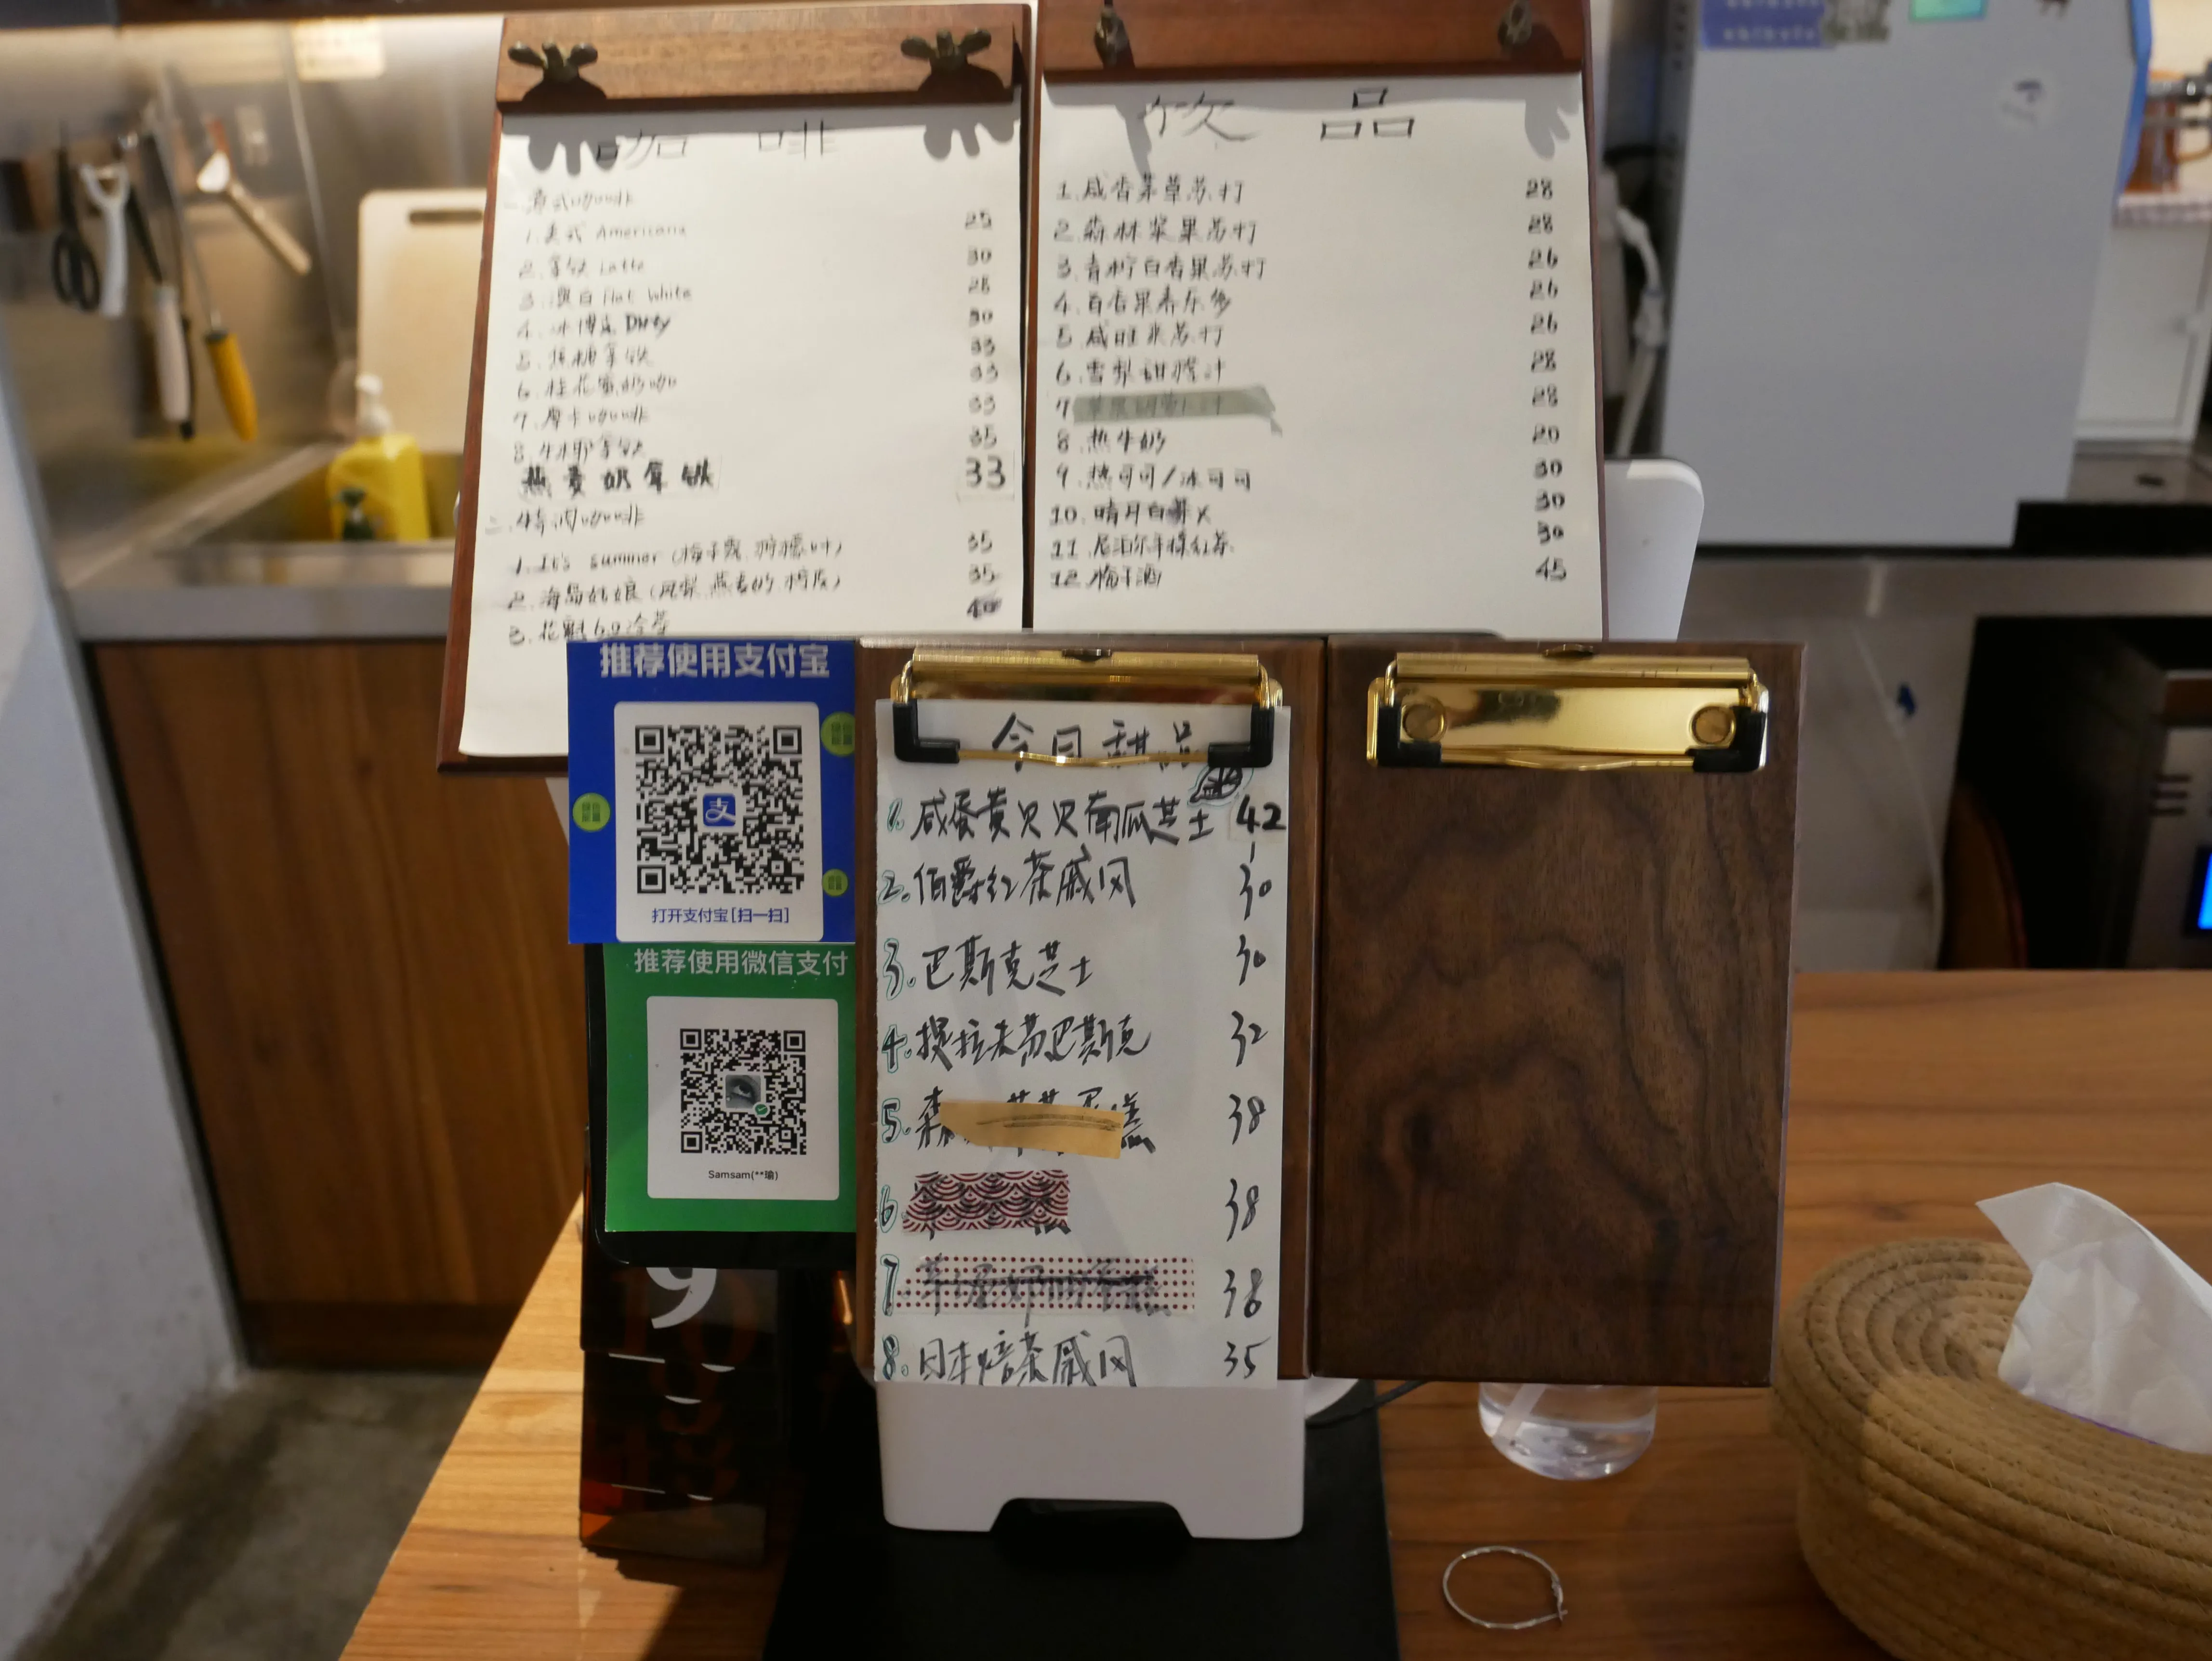 咖 啡
一.意式咖啡
1.美式 Americano 25
2.拿铁 Latte 30
3.澳白 Flat White 28
4.冰博克 Dirty 30
5.焦糖拿铁 33
6.桂花蜜奶咖 33
7.摩卡咖啡 33
8.生椰拿铁 35
燕麦奶拿铁 33
二.特调咖啡
1.It's summer (梅子 35
2.海岛姑娘 (凤梨.燕麦奶.柠 35
3.花魁6.0冷萃 40
饮 品
1.咸香草苏打 28
2.森林浆果苏打 28
3.青柠百香果苏打 26
4.百香果养乐多 26
5.咸 苏打 26
6.雪梨甜橙汁 28
7 苹果胡萝卜汁 28
8.热牛奶 20
9.热可可/冰可可 30
10.晴月白 30
11.尼泊尔手揉红茶 30
12.梅子酒 45
推荐使用支付宝
支
打开支付宝[扫一扫]
推荐使用微信支付
Samsam(**瑜)
今日甜品
1.咸蛋黄贝贝南瓜芝士 42
2.伯爵红茶戚风 30
3.巴斯克芝士 30
4.提拉米苏巴斯克 32
5.森 糕 38
6. 38
7. 38
8.日本焙茶戚风 35
9